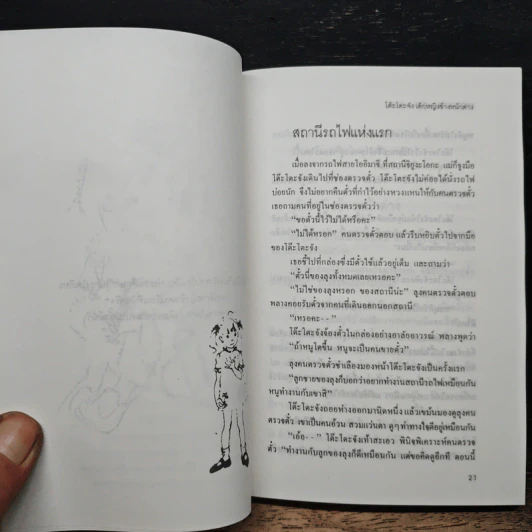 โต๊ะโตะจัง เด็กหญิงข้างหน้าต่าง
สถานีรถไฟแห่งแรก
เมื่อลงจากรถไฟสายโออิมาชิ ที่สถานีชิยูงะโอกะ แม่ก็จูงมือ
โต๊ะโตะจังเดินไปที่ช่องตรวจตั๋ว โต๊ะโตะจังไม่ค่อยได้นั่งรถไฟ
บ่อยนัก จึงไม่อยากคืนตั๋วที่กำไว้อย่างหวงแหนให้กับคนตรวจตั๋ว
เธอถามคนที่อยู่ในช่องตรวจตั๋วว่า
"ขอตั๋วนี้ไว้ไม่ได้หรือคะ"
"ไม่ได้หรอก" คนตรวจตั๋วตอบ แล้วรีบหยิบตั๋วไปจากมือ
ของโต๊ะโตะจัง
เธอชี้ไปที่กล่องซึ่งมีตั๋วใช้แล้วอยู่เต็ม และถามว่า
"ตั๋วนี่ของลุงทั้งหมดเลยเหรอคะ"
"ไม่ใช่ของลุงหรอก ของสถานีน่ะ" ลุงคนตรวจตั๋วตอบ
พลางคอยรับตั๋วจากคนที่เดินออกนอกสถานี
"เหรอคะ--"
โต๊ะโตะจังจ้องตั๋วในกล่องอย่างอาลัยอาวรณ์ พลางพูดว่า
"ถ้าหนูโตขึ้น หนูจะเป็นคนขายตั๋ว"
ลุงคนตรวจตั๋วชำเลืองมองหน้าโต๊ะโตะจังเป็นครั้งแรก
"ลูกชายของลุงก็บอกว่าอยากทำงานสถานีรถไฟเหมือนกัน
หนูทำงานกับเขาสิ"
โต๊ะโตะจังถอยห่างออกมานิดหนึ่ง แล้วเขม้นมองดูลุงคน
ตรวจตั๋ว เขาเป็นคนอ้วน สวมแว่นตา ดูๆ ท่าทางใจดีอยู่เหมือนกัน
"เอ้อ--" โต๊ะโตะจังเท้าสะเอว พินิจพิเคราะห์คนตรวจ
ตั๋ว "ทำงานกับลูกของลุงก็ดีเหมือนกัน แต่ขอคิดดูอีกที ตอนนี้
21